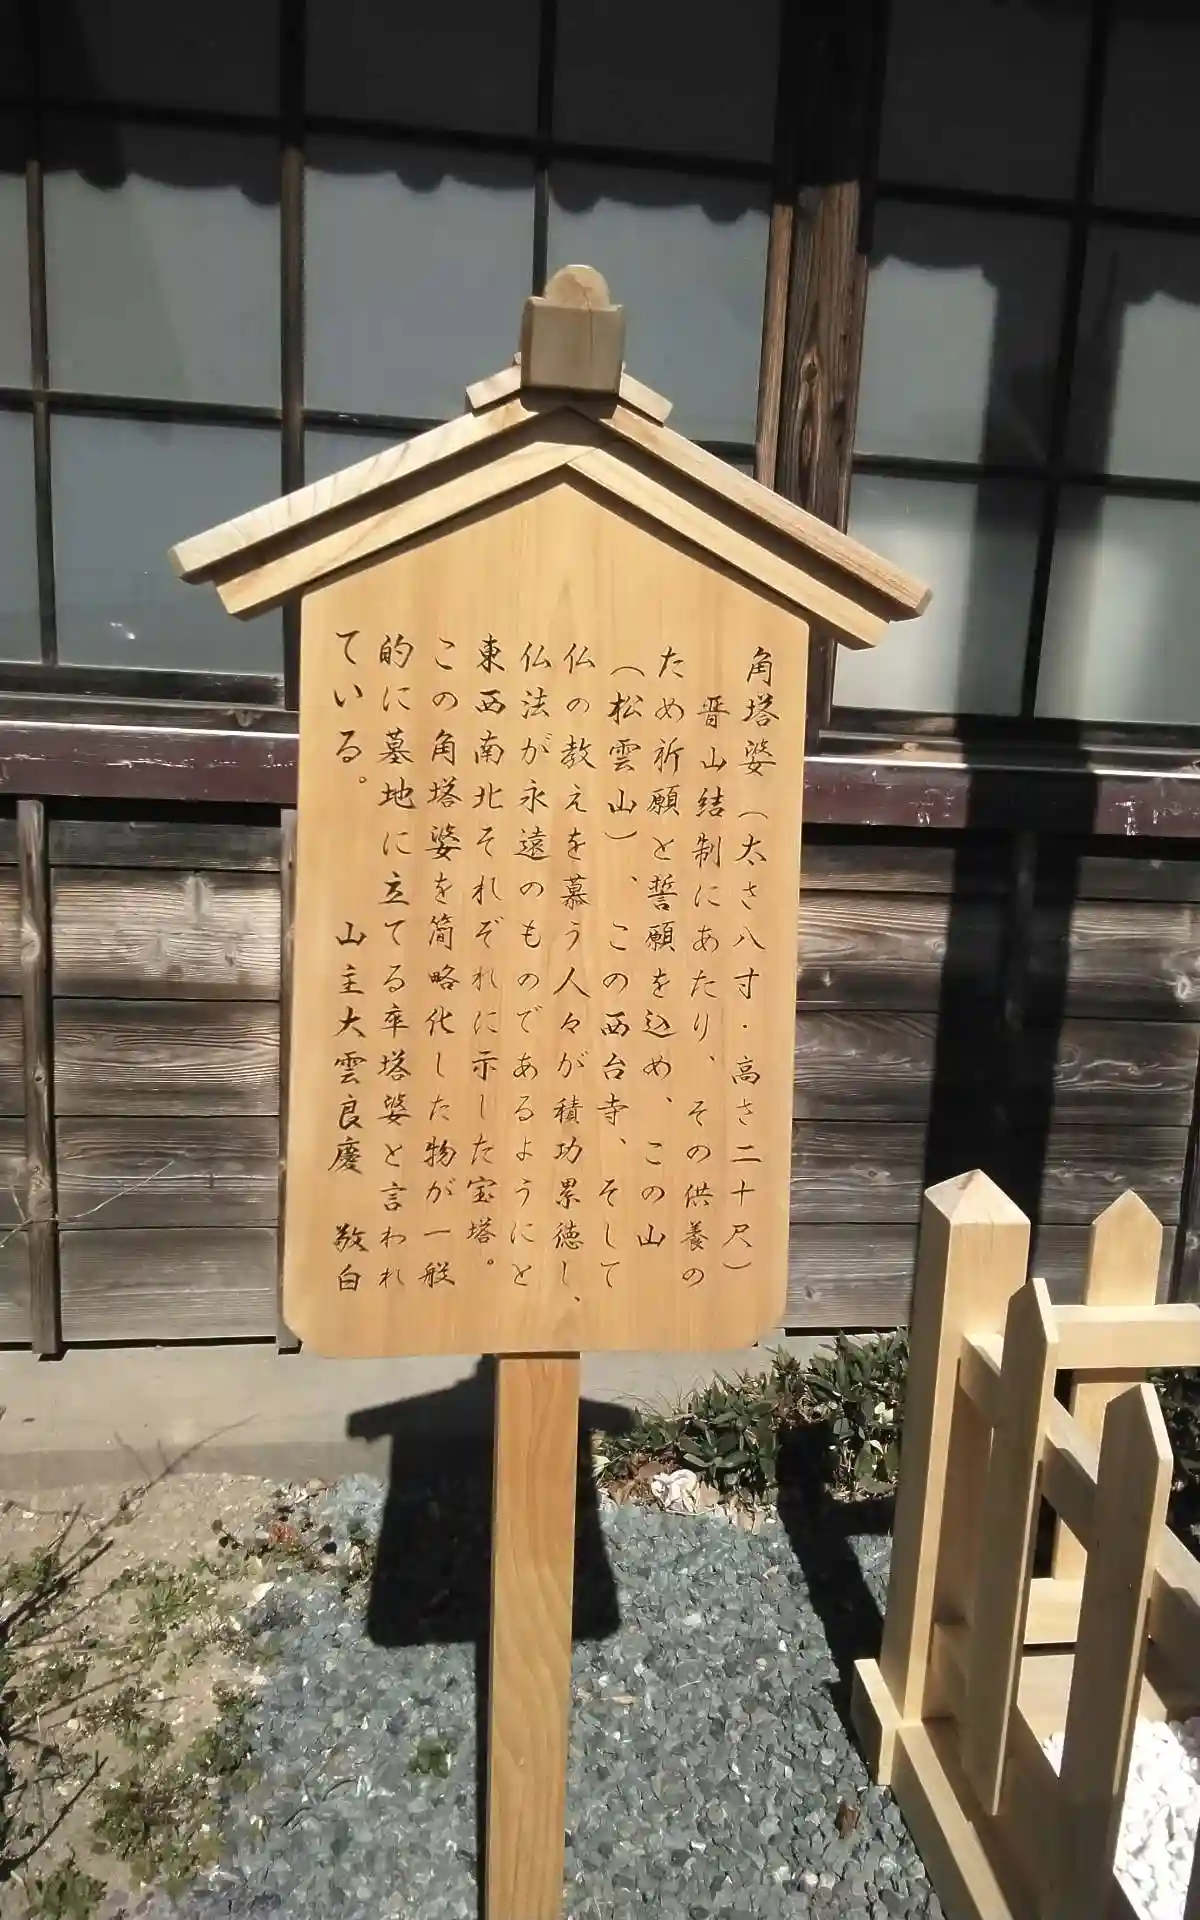 角塔婆（太さ八寸・高さ二十尺）
晋山結制にあたり、その供養の
ため祈願と誓願を込め、この山
（松雲山）、この西台寺、そして
仏の教えを慕う人々が積功累徳し、
仏法が永遠のものであるようにと
東西南北それぞれに示した宝塔。
この角塔婆を簡略化した物が一般
的に墓地に立てる卒塔婆と言われ
ている。
山主大雲良慶　敬白